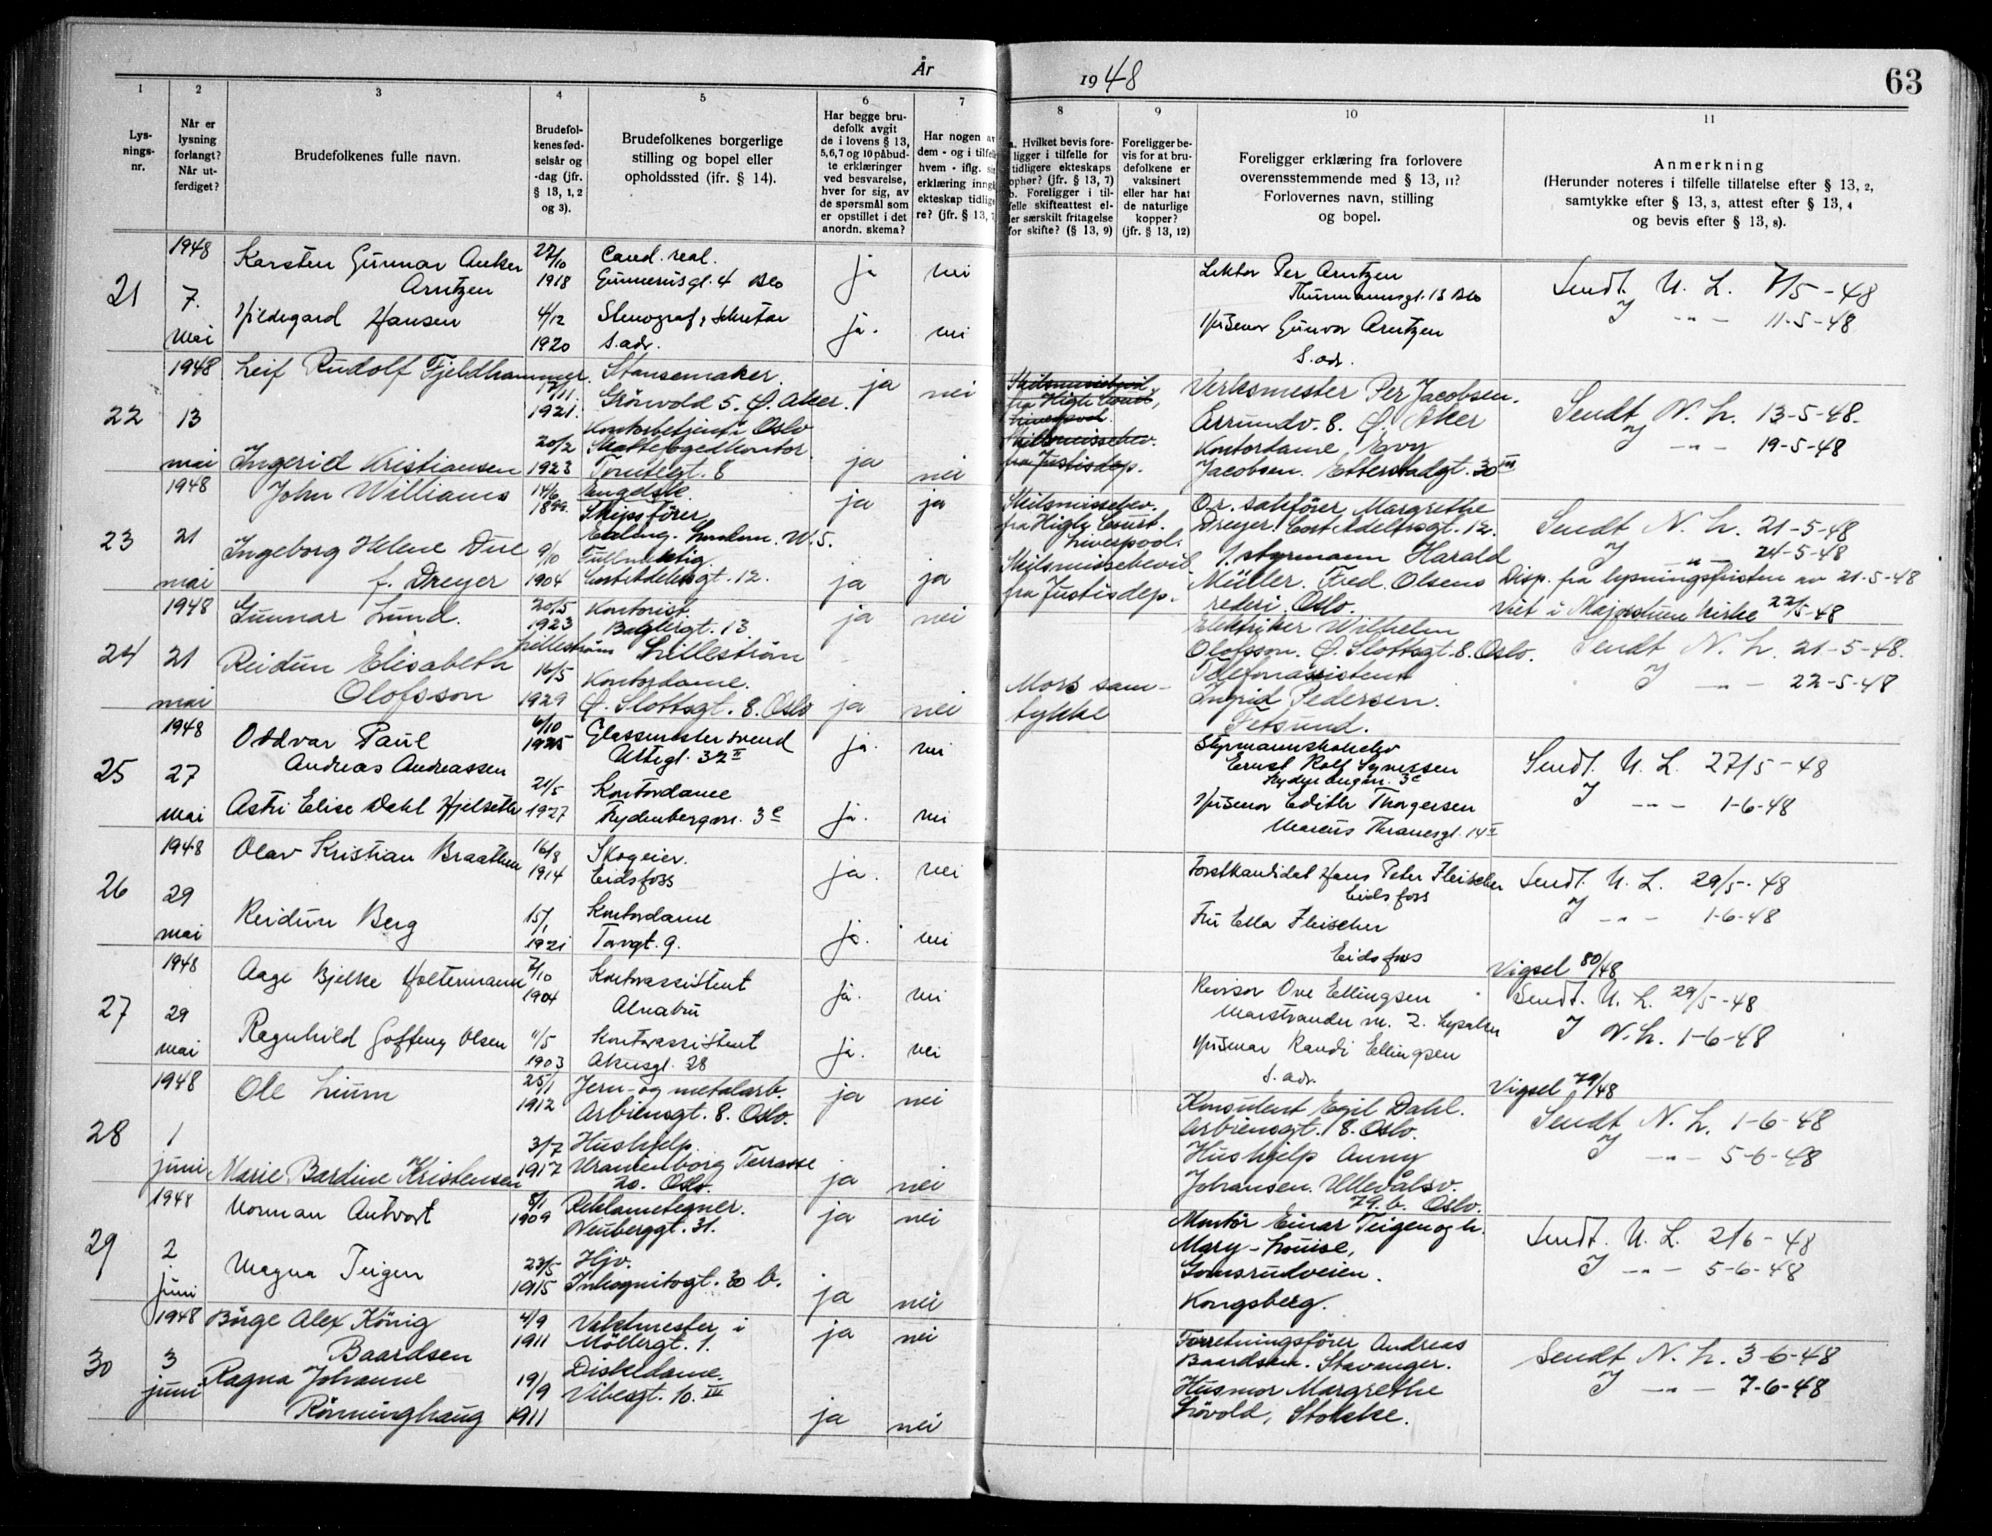 År
1948
63
1
2
3
4
5
6
7
8
9
10
11
Lys-
nings-
nr.
Når er
lysning
forlangt?
Når ut-
ferdiget?
Brudefolkenes fulle navn.
Brudefol-
kenes fød-
selsår og
-dag (jfr.
§ 13, 1, 2
og 3).
Brudefolkenes borgerlige
stilling og bopel eller
opholdssted (ifr. § 14).
Har begge bru-
defolk avgit
de i lovens § 13,
5, 6, 7 og 10 påbud-
te erklæringer
ved besvarelse,
hver for sig, av
de spørsmål som
er opstillet i det
anordn. skema?
Har nogen av
dem - og i tilfelle
hvem - iflg. sin
erklæring inngå
ekteskap tidlige-
re? (jfr. § 13, 7
a. Hvilket bevis fore-
ligger i tilfelle for
tidligere ekteskaps
ophør? (jfr. § 13, 7)
b. Foreligger i til-
felle skifteattest el-
ler særskilt fritagelse
for skifte? (§ 13, 9)
Foreligger be-
vis for at bru-
defolkene er
vaksinert
eller har hat
de naturlige
kopper?
(jfr. § 13, 12)
Foreligger erklæring fra forlovere
overensstemmende med § 13, 11?
Forlovernes navn, stilling
og bopel.
Anmerkning
(Herunder noteres i tilfelle tillatelse efter § 13, 2,
samtykke efter § 13, 3, attest efter § 13, 4
og bevis efter § 13, 8).
21
1948
7.
mai
Karsten Gunnar Anker
Arntzen
27/10
1918
Cand. real.
Gunnerusgt. 4 Oslo
ja
nei
Lektor Per Arntzen
Thurmannsgt. 13 Oslo
Sendt. N. L. 7/5-48
Hildegard Hansen
4/12
1920
Stenograf, sekretær
s.adr.
ja.
nei
Husmor Gunvor Arntzen
S. adr.
J -"- 11-5-48
22
1948
13
mai
Leif Rudolf Fjeldhammer.
1921.
Stansemaker.
Grönvold 5. Ø. Aker.
ja
nei
Verksmester Per Jacobsen.
Ø. Aker
Sendt N. L. 13-5-48.
Ingerid Kristiansen
20/2
1923
Kontorbetjent Oslo
Skattefogedkontor
ja
nei
Kontordame Evy
Jacobsen. Etterstadgt. 30 III
J -"- 19-5-48
23
1948
21
mai
John Williams
14/6
Engelsk.
Skipsförer
Ealing. London. W.5.
ja
ja
Skilsmissebev.
fra High Court.
Liverpool.
O.r. sakförer Margrethe
Dreyer. Cort Adelersgt. 12.
Sendt N. L. 21-5-48
J -"- 24-5-48
Ingeborg Helene Due
f. Dreyer
9/10
1904
Fullmektig.
Cort Adelersgt. 12.
ja
ja
Skilsmissebevil
fra Justisdep.
1. styrmann Harald
Müller. Fred. Olsens
rederi. Oslo.
Disp. fra lysningsfristen av 21-5-48
Viet i Majorstuen kirke 22/5-48
24
1948
21
mai
Gunnar Lund.
20/5
1923
Kontorist
Baglergt. 13.
Lilleström Lilleström
ja
nei
Elektriker Wilhelm
Olofsson. Ø. Slottsgt. 8. Oslo.
Sendt N. L. 21-5-48.
Reidun Elisabeth
Olofsson
16/5
1929
Kontordame.
Ø. Slottsgt. 8. Oslo
ja
nei
Mors sam-
tykke
Telefonassistent
Ingrid Pedersen.
Fetsund.
J -"- 22-5-48
25
1948
27
mai
Oddvar Paul
Andreas Andreassen
6/10
1925
Glassmestersvend
Uttegt. 32 II
ja.
nei
Styrmannskoleelev
Ernst Rolf Synessen
Sendt. N. L. 27/5-48
Astri Elise Dahl Hjelseth
21/5
1927
Kontordame
Rydenbergvn. 3 c
ja.
nei
Husmor Edith Thorgersen
Marcus Thranesgt. 14 II
J -"- 1-6-48
26
1948
29
mai
Olav Kristian Braathen
16/8
1914
Skogeier.
Eidsfoss
ja.
nei
Forstkandidat Hans Peter Fleischer
Eidsfoss
Sendt. N. L. 29/5-48
Reidun Berg
15/1
1921
Kontordame
Torvgt. 9.
ja.
nei
Fru Ella Fleischer
Eidsfoss
J -"- 1-6-48
Vigsel 80/48
27
1948
29
mai
Aage Bjelke Holtermann
7/10
1904
Kontorassistent
Alnabru
ja.
nei
Revisor Ove Ellingsen
Sendt. N. L. 29/5-48
Ragnhild Goffeng Olsen
11/5
1903
Kontorassistent
Akersgt. 28
ja.
nei
Husmor Randi Ellingsen
S. adr.
J N. L. 1-6-48
Vigsel 79/48
28
1948
1
juni
Ole Lium
25/1
1912
Jern- og metalarb.
Arbiensgt. 8. Oslo.
ja
nei
Konsulent Egil Dahl.
Arbiensgt. 8. Oslo.
Sendt N. L. 1-6-48
Marie Bardine Kristensen
3/7
1917
Hushjelp.
Uranienborg Terrasse
20. Oslo.
ja
nei
Hushjelp Anny
Johansen. Ullevålsv.
79. b. Oslo.
J -"- 5-6-48
29
1948
2
juni
Norman Antvort
8/1
1909
Reklametegner.
Neuberggt. 31.
ja
nei
Montör Einar Teigen og h.
Mary-Louise,
Gomsrudveien.
Kongsberg.
Sendt. N. L. 2/6-48
Magna Teigen
23/5
1915
Hjv.
Inkognitogt. 30 b.
ja
nei
J -"- 5-6-48
30
1948
3
juni
Börge Alex König
Baardsen
4/9
1911
Vaktmester i
Möllergt. 1.
ja
nei
Forretningsförer Andreas
Baardsen. Stavanger.
Sendt N. L. 3-6-48
Ragna Johanne
Rönninghaug
19/9
1911
Diskedame.
Vibesgt. 10. III
ja
nei
Husmor Margrethe
Lövold, Stokke.
J -"- 7-6-48